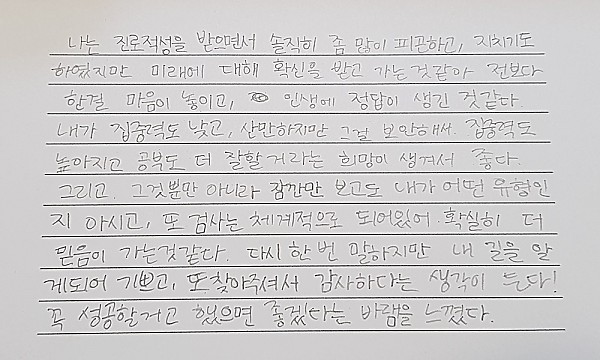 나는 진로적성을 받으면서 솔직히 좀 많이 피곤하고, 지치기도
하였지만 미래에 대해 확신을 받고 가는것같아 전보다
한결 마음이 놓이고, 인생에 정답이 생긴 것같다.
내가 집중력도 낮고, 산만하지만 그걸 보안해서. 집중력도
높아지고 공부도 더 잘할거라는 희망이 생겨서 좋다.
그리고. 그것뿐만 아니라 잠깐만 보고도 내가 어떤 유형인
지 아시고, 또 검사는 체계적으로 되어있어 확실히 더
믿음이 가는것같다. 다시 한 번 말하지만 내 길을 알
게되어 기쁘고, 또 찾아주셔서 감사하다는 생각이 든다!
꼭 성공할거고 했으면 좋겠다는 바램을 느꼈다.